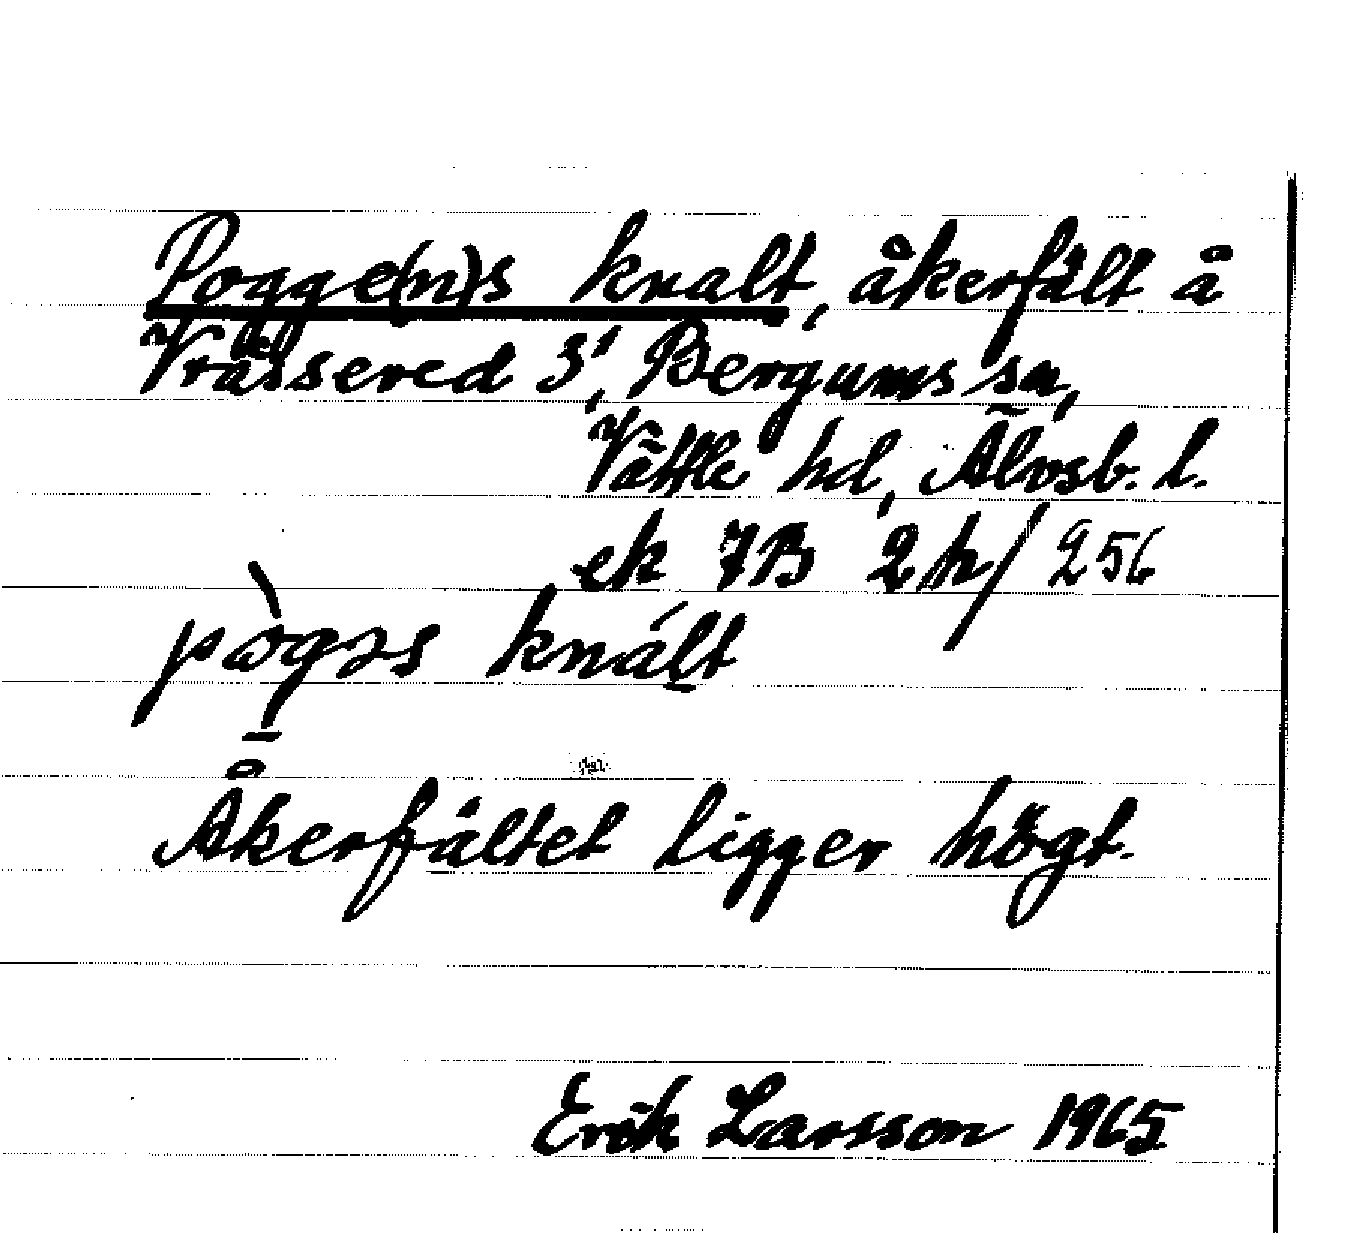 Pogge(n)s knalt, åkerfält å
Vråssered 3¹, Bergums sn,
Vättle hd, Älvsb. l.
ek 7B 2h/256
pògəs knált
Åkerfältet ligger högt.
Erik Larsson 1965